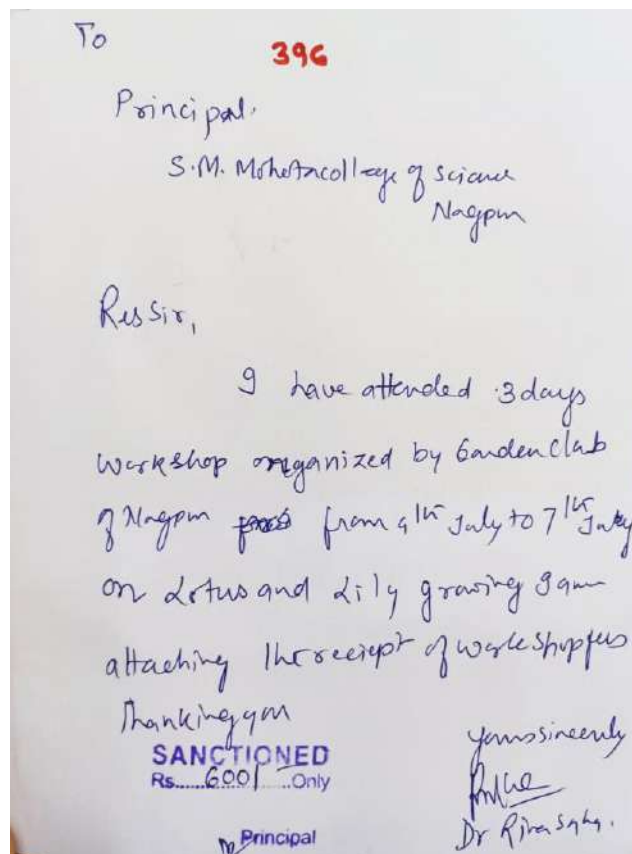 To
396
Principal.
S.M. Mohota college of science
Nagpur
Res Sir,
I have attended 3 days
workshop organized by Garden Club
of Nagpur from 4th July to 7th July
on Lotus and Lily growing I am
attaching the reciept of workshop fees
Thanking you
SANCTIONED
Rs......600/-.....Only
Principal
Yours sincerely
Dr